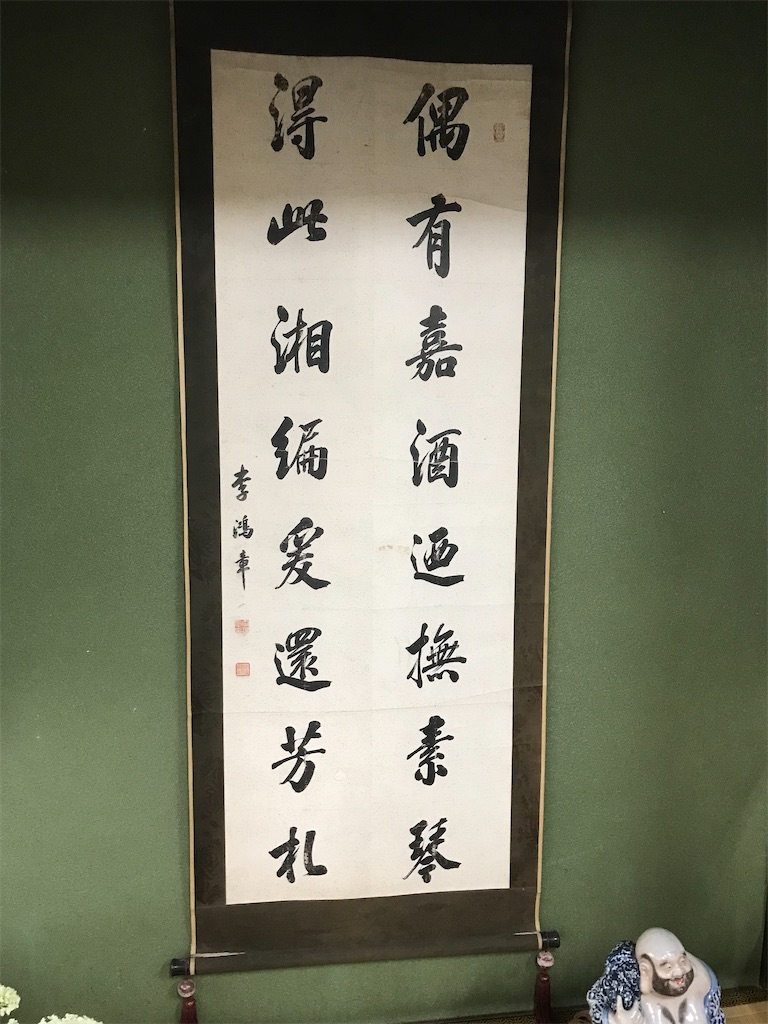 偶有嘉酒迺撫素琴
得此湘編爰還芳札
李鴻章